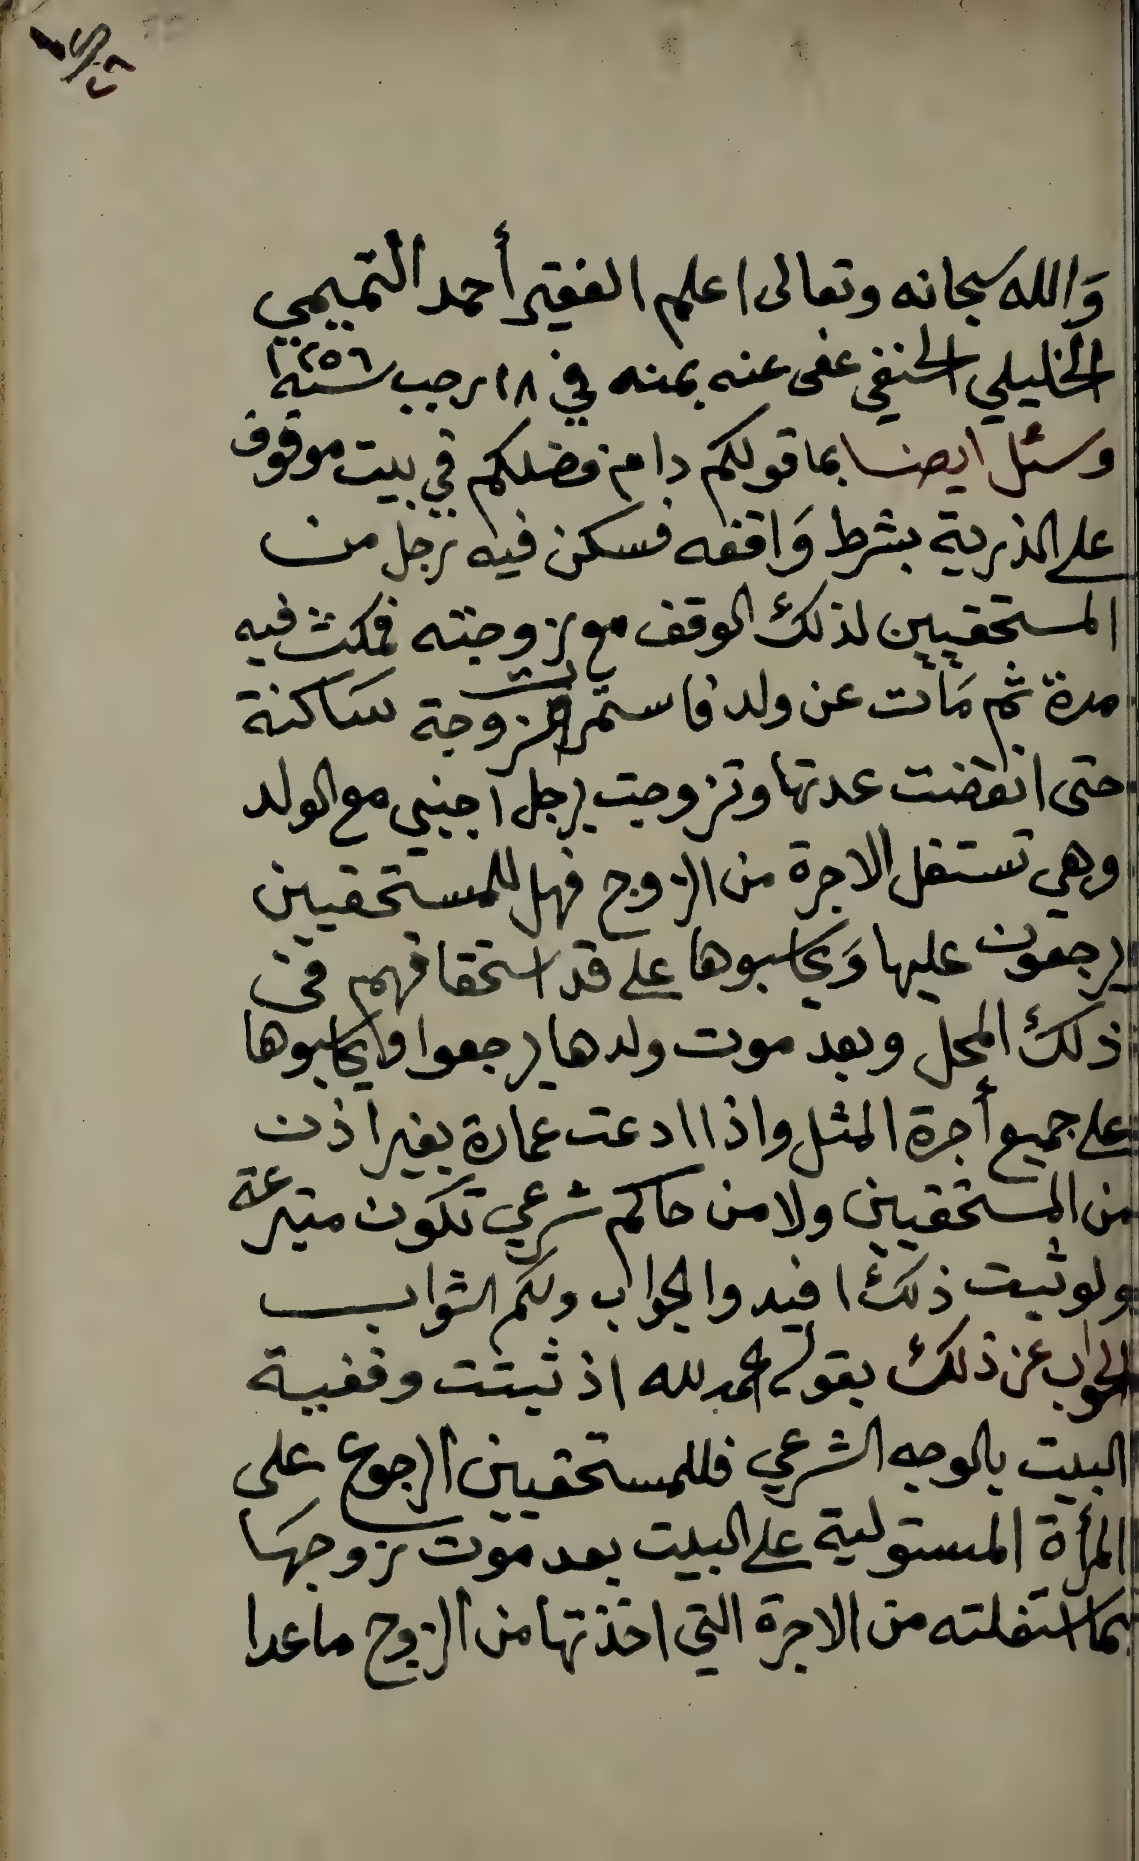 وَالله سبحانه وتعالى اعلم الفقير أحمد التميمي
الخليلي الحنفي عفى عنه بمنه في ١٨ رجب سنة ١٢٥٦
وسئل ايضا بما قولكم دام فضلكم في بيت موقوف
على الذرية بشرط وَاقفه فسكن فيه رجل من
المستحقيين لذلك الوقف مع زوجته فمكث فيه
مدة ثم مَات عن ولد فاستمرت الزوجة سَاكنة
حتى انقضت عدتها وتزوجت برجل اجنبي مع الولد
وهي تستغل الاجرة من الزوج فهل للمستحقيين
يرجعون عليها وَيحاسبوها على قد استحقاقهم في
ذلك المحل وبعد موت ولدها يرجعوا وايحاسبوها
على جميع أجرة المثل واذا ادعت عمارة بغير اذن
من المستحقيين ولا من حاكم شرعي تكون متبرعة
ولو ثبت ذلك افيدوا الجواب ولكم الثواب
الجواب عن ذلك بقوله الحمد لله اذ ثبتت وقفية
البيت بالوجه الشرعي فللمستحقيين الرجوع على
المرأة المستولية على البيت بعد موت زوجهَا
بما استغلته من الاجرة التي اخذتها من الزوج ماعدا